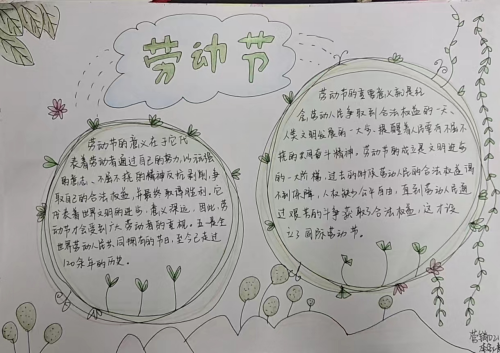 劳动节
劳动节的意义在于它代
表着劳动者通过自己的努力,以顽强
的意志、不屈不挠的精神反抗剥削,争
取自己的合法权益,并最终取得胜利。它
代表着世界文明的进步,意义深远,因此,劳
动节才会受到广大劳动者的重视。五一是全
世界劳动人民共同拥有的节日,至今已走过
120余年的历史。
劳动节的重要意义就是纪
念劳动人民争取到合法权益的一天、
人类文明发展的一大步,提醒着人民要有不屈不
挠的共同奋斗精神。劳动节的成立是文明进步
的一大阶梯,过去的时候劳动人民的合法权益得
不到保障,人权缺少平等日,直到劳动人民通
过艰苦的斗争获取了合法权益,这才设
立了国际劳动节。